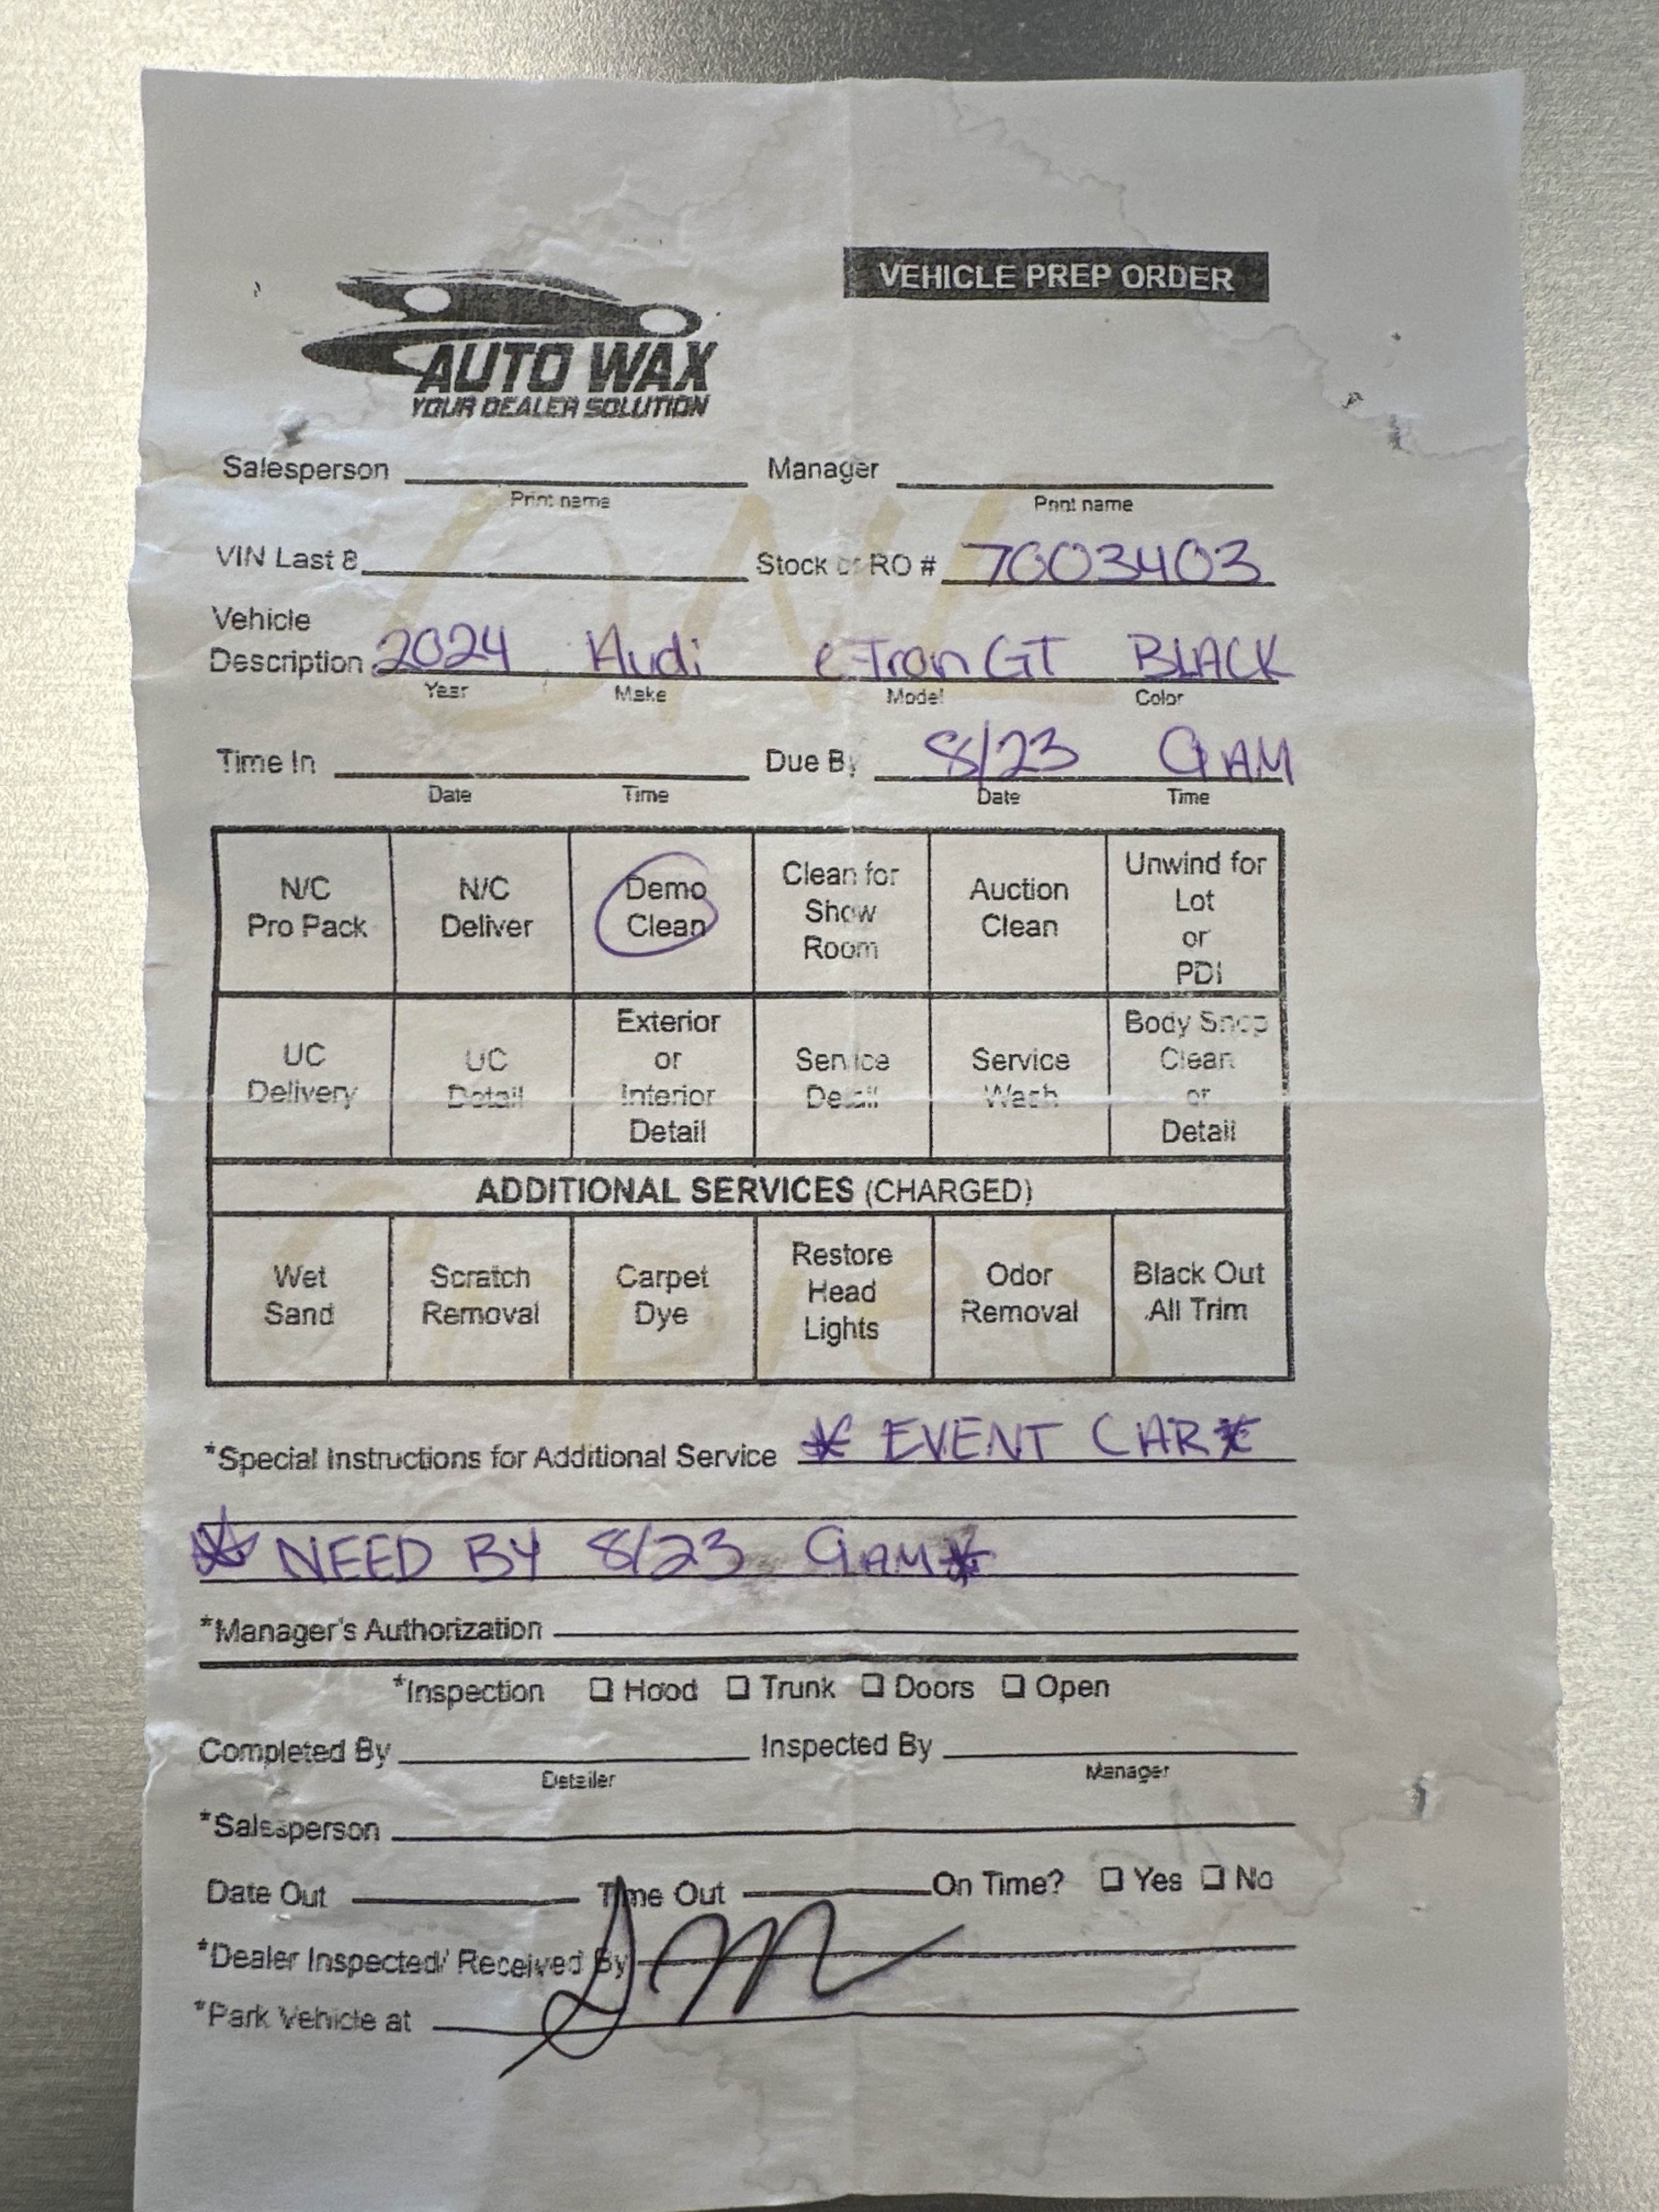 VEHICLE PREP ORDER
AUTO WAX
YOUR DEALER SOLUTION
Salesperson Manager
Print name Print name
VIN Last 8 Stock or RO # 7003403
Vehicle
Description 2024 Audi e-Tron GT BLACK
Year Make Model Color
Time In Due By 8/23 9AM
Date Time Date Time
N/C
Pro Pack
N/C
Deliver
Demo
Clean
Clean for
Show
Room
Auction
Clean
Unwind for
Lot
or
PDI
UC
Delivery
UC
Detail
Exterior
or
Interior
Detail
Service
Detail
Service
Wash
Body Shop
Clean
or
Detail
ADDITIONAL SERVICES (CHARGED)
Wet
Sand
Scratch
Removal
Carpet
Dye
Restore
Head
Lights
Odor
Removal
Black Out
All Trim
*Special Instructions for Additional Service * EVENT CAR *
* NEED BY 8/23 9AM *
*Manager's Authorization
*Inspection ❏ Hood ❏ Trunk ❏ Doors ❏ Open
Completed By Inspected By
Detailer Manager
*Salesperson
Date Out Time Out On Time? ❏ Yes ❏ No
*Dealer Inspected/ Received By
*Park Vehicle at